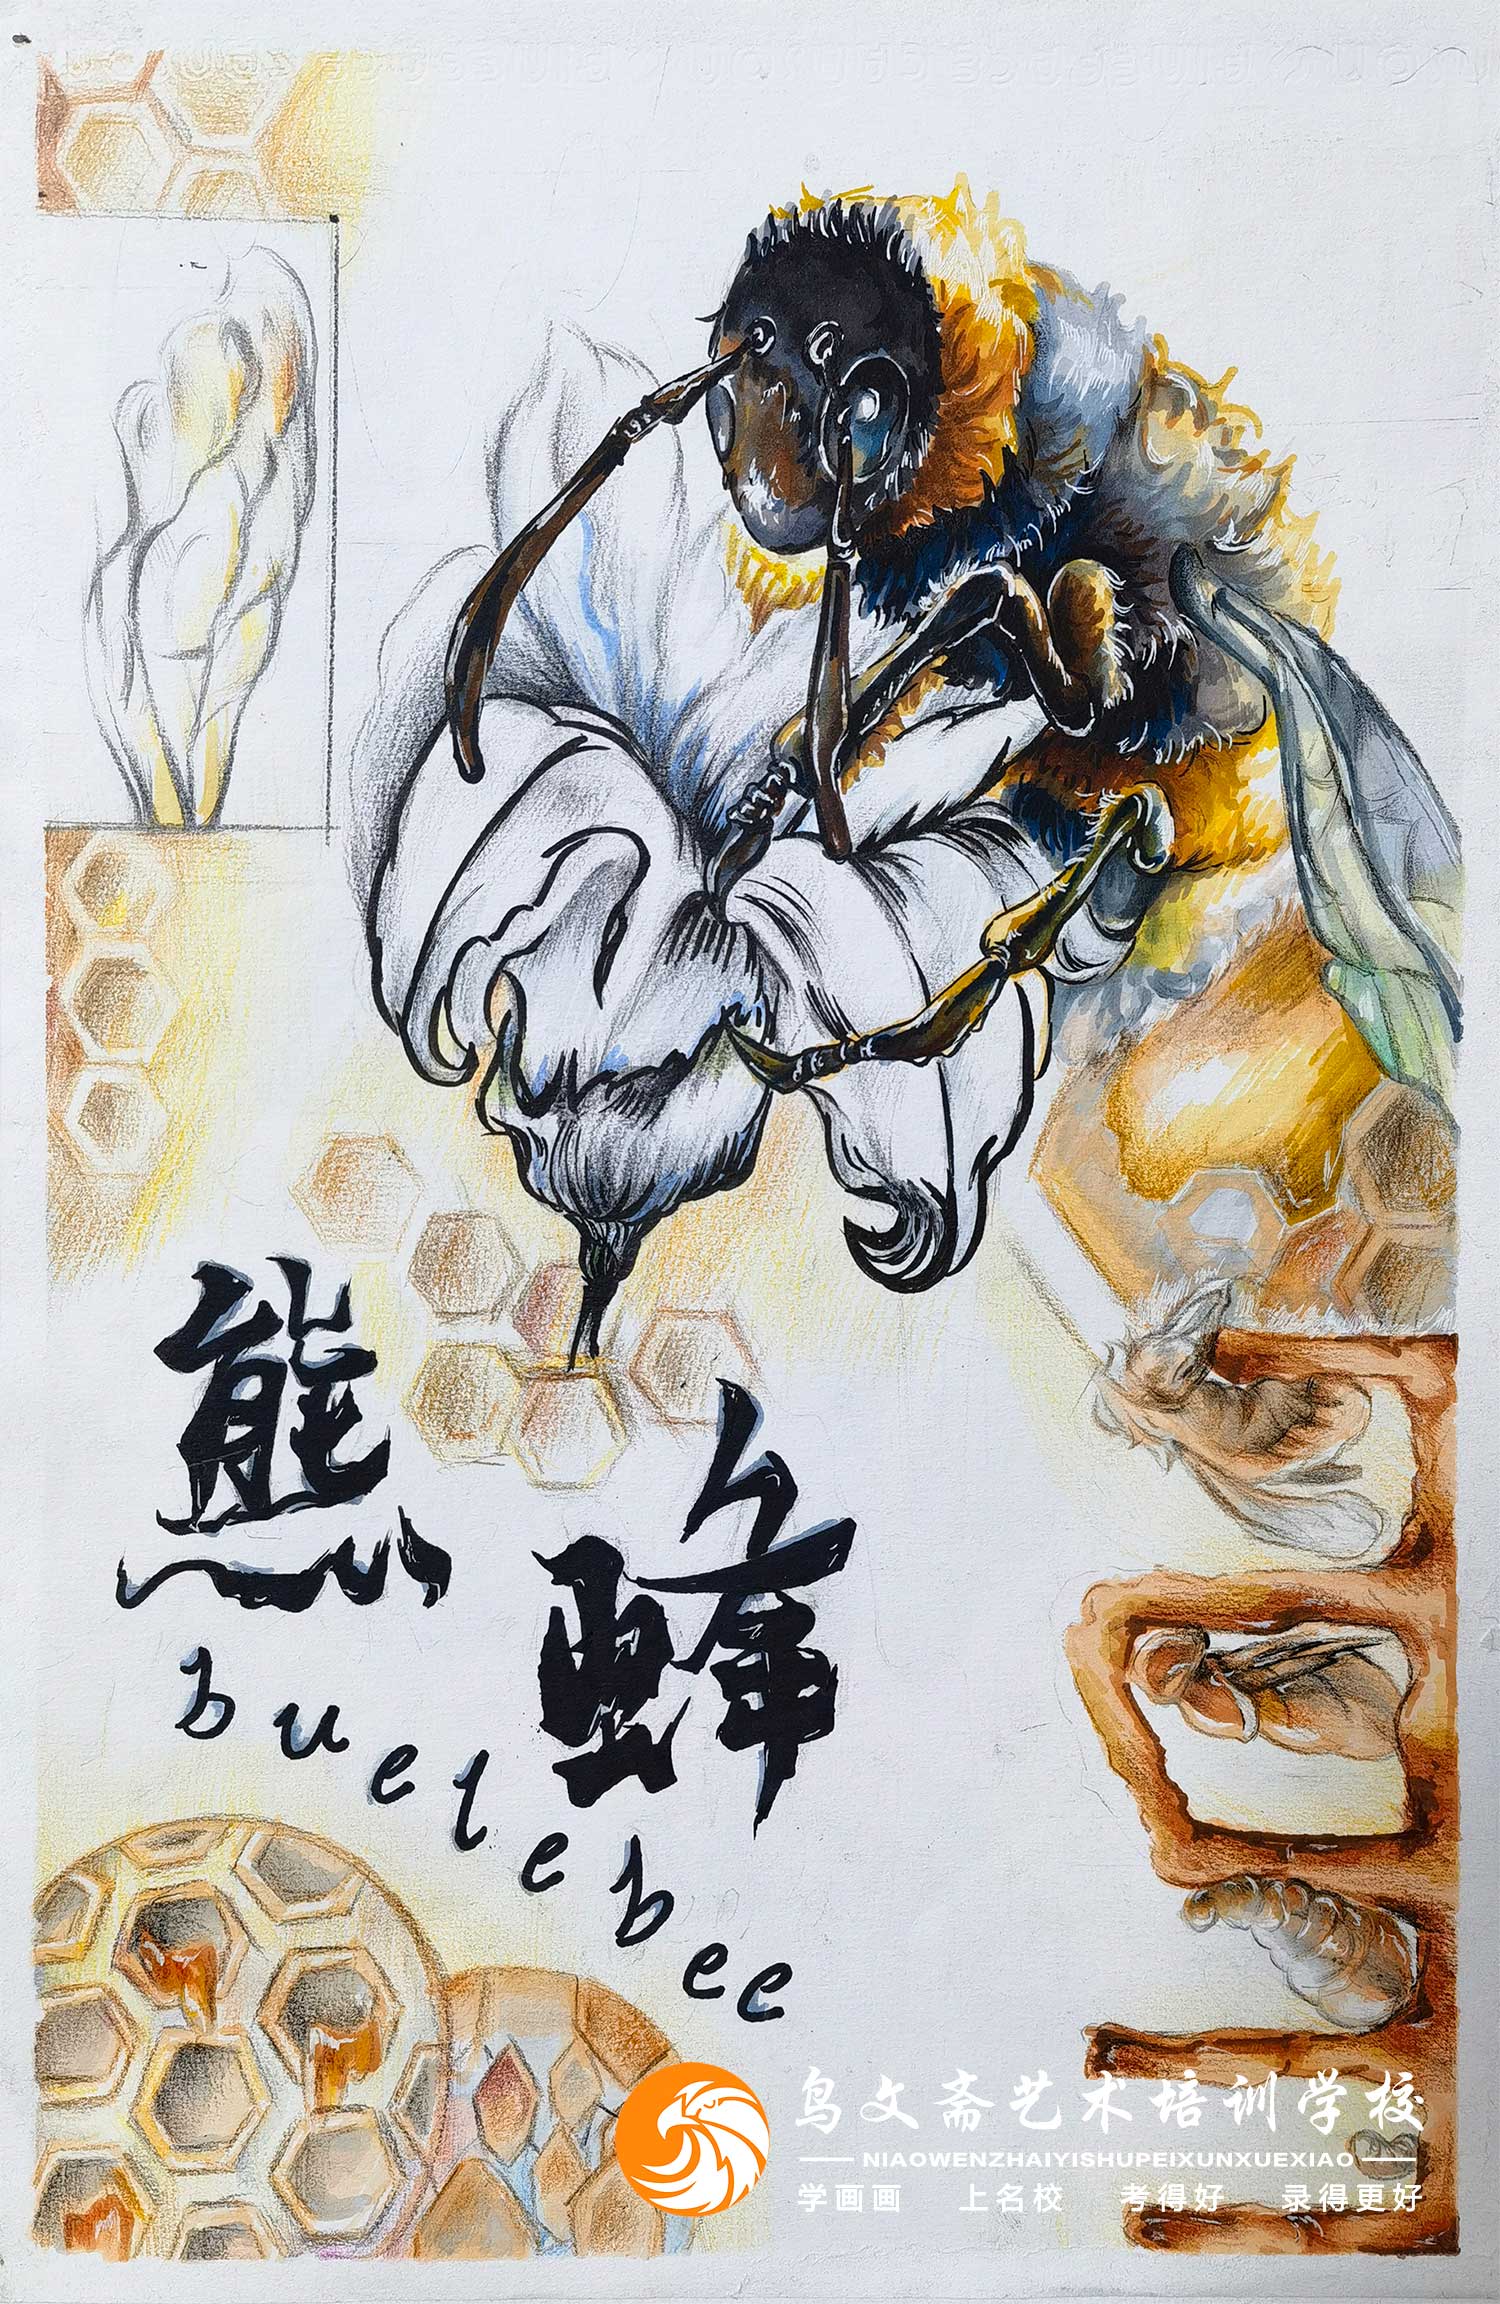 熊
蜂
buelebee
鸟文斋艺术培训学校
NIAOWENZHAIYISHUPEIXUNXUEXIAO
学画画 上名校 考得好 录得更好